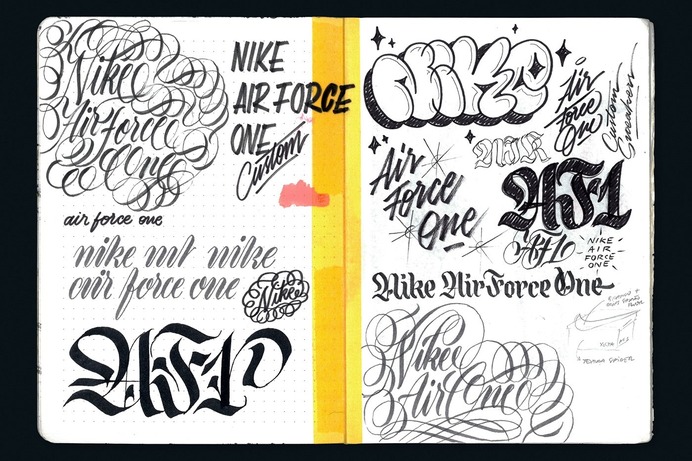 Nike
Air Force
One
NIKE
AIR FORCE
ONE
Custom
air force one
nike mt nike
air force one
Nike
AF1
Nike
Air
Force
One
Custom
Sneakers
Air
Force
One
AIR
AF1
AF1
NIKE
AIR
FORCE
ONE
Nike Air Force One
Nike
Air One